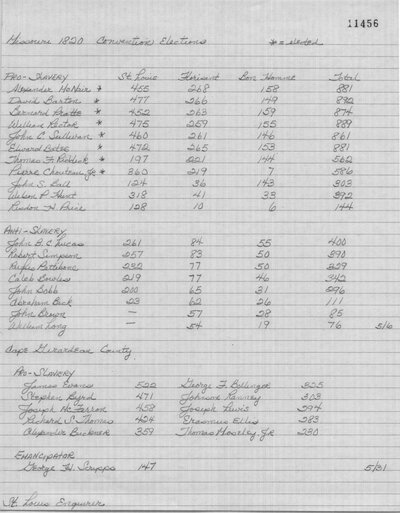 11456
Missouri 1820 Convention Elections * = elected
PRO-SLAVERY St. Louis Florisant Bon Homme Total
Alexander McNair * 455 268 158 881
David Barton * 477 266 149 892
Bernard Pratte * 452 263 159 874
William Rector * 475 259 155 889
John C. Sullivan * 460 261 146 861
Edward Bates * 472 265 153 881
Thomas F. Riddick * 197 221 144 562
Pierre Chouteau Jr * 360 219 7 586
John S. Ball 124 36 143 303
Wilson P. Hunt 318 41 33 392
Risdon H. Price 128 10 6 144
ANTI-SLAVERY
John B.C. Lucas 261 84 55 400
Robert Simpson 257 83 50 390
Rufus Pettibone 232 77 50 329
Caleb Bowles 219 77 46 342
John Bobb 200 65 31 296
Abraham Beck 23 62 26 111
John Brown — 57 28 85
William Long — 54 19 76 5/6
Cape Girardeau County
PRO-SLAVERY
James Evans 522 George F. Bollinger 325
Stephen Byrd 471 Johnson Ranney 303
Joseph McFerron 458 Joseph Lewis 294
Richard S. Thomas 424 Erasmus Ellis 283
Alexander Buckner 359 Thomas Mosely Jr 230
EMANCIPATOR
George H. Scripps 147 5/31
St. Louis Enquirer